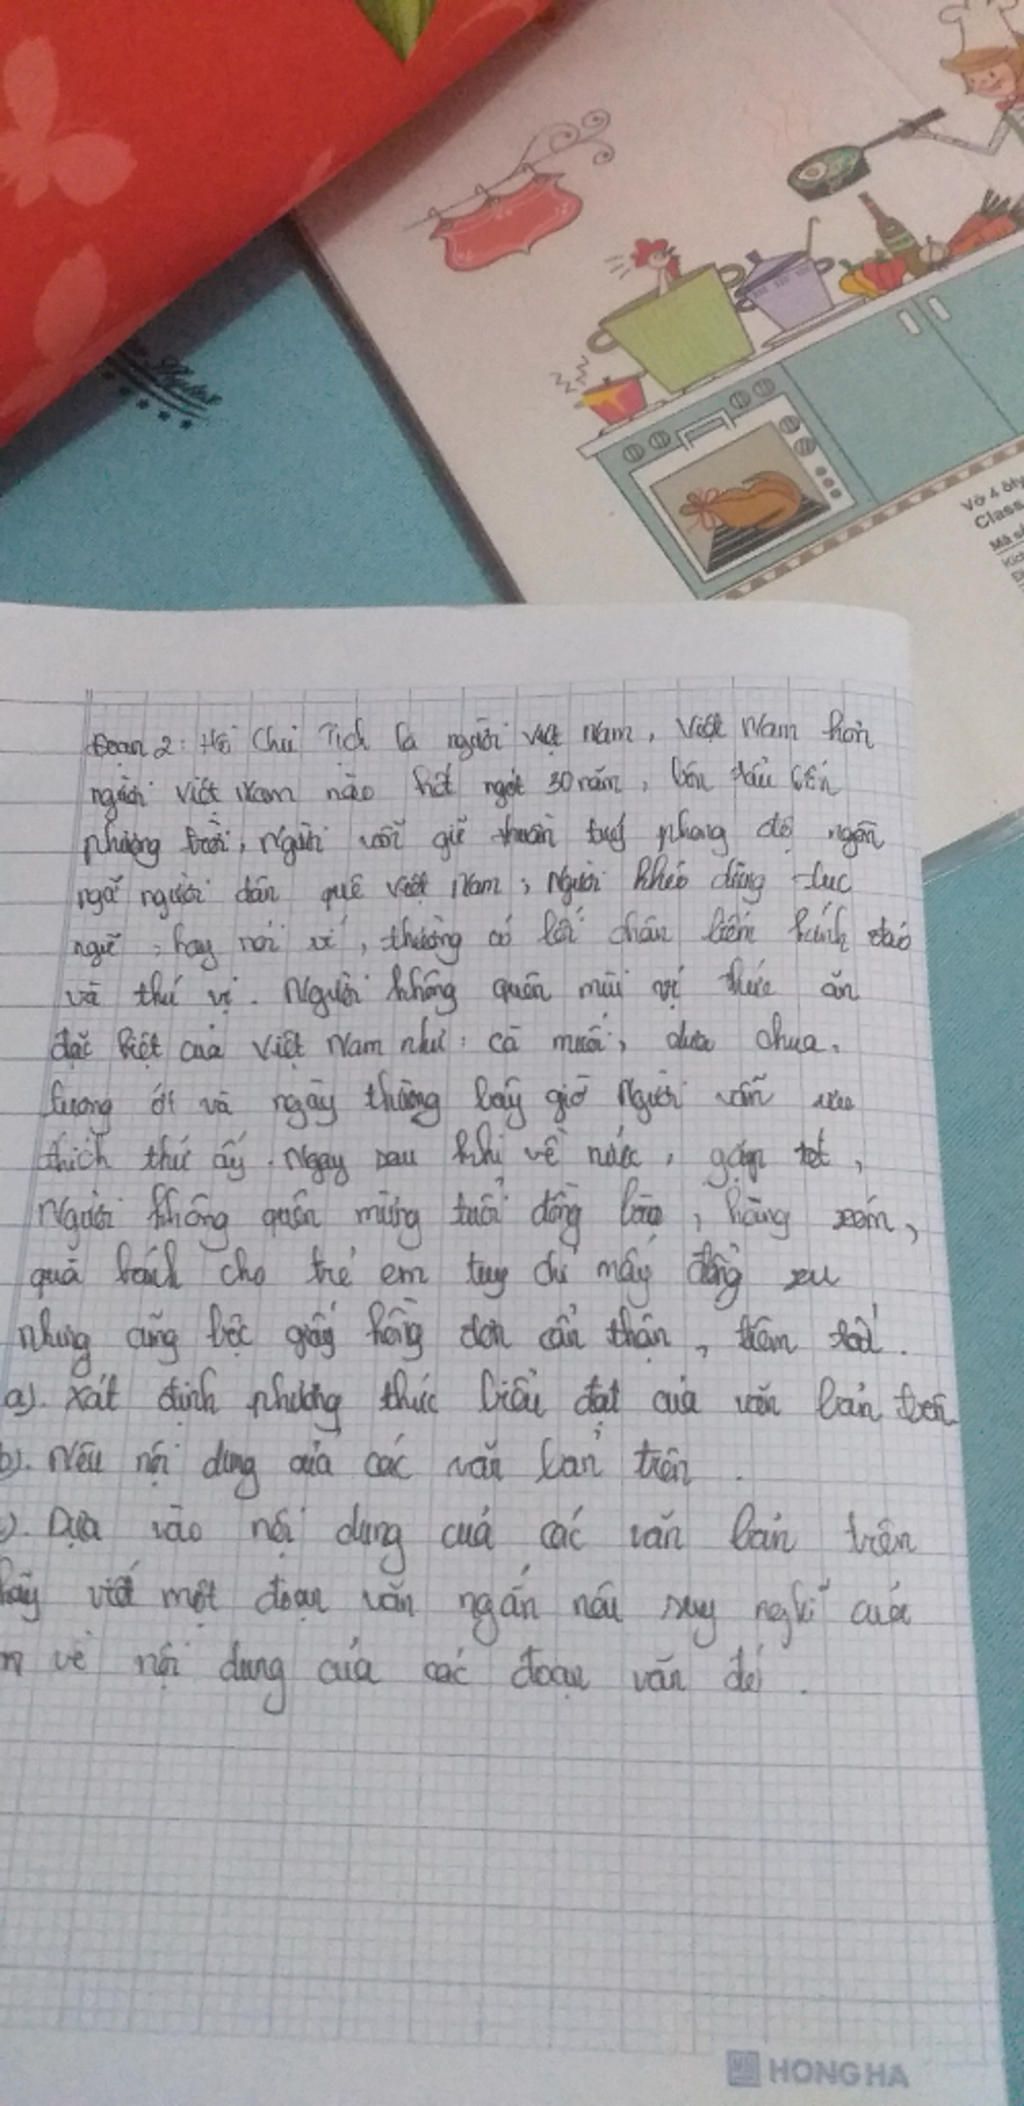 Vở 4 ôly
Class
Mã s
Kích
Đ
Đoạn 2: Hồ Chủ Tịch là người Việt Nam, Việt Nam hơn
người Việt Nam nào hết ngót 30 năm, bôn tẩu bốn
phương trời, Người vẫn giữ thuần tuý phong độ ngôn
ngữ người dân quê Việt Nam, Người khéo dùng tục
ngữ, hay nói ví, thường có lối châm biếm kính đáo
và thú vị. Người không quên mùi vị thức ăn
đặc biệt của Việt Nam như: cà muối, dưa chua,
tương ớt và ngày thường bây giờ Người vẫn ưa
thích thứ ấy. Ngay sau khi về nước, gặp tết,
Người không quên mừng tuổi đồng bào, hàng xóm,
quà bánh cho trẻ em tuy chỉ mấy đồng xu
nhưng cũng bọc giấy hồng đơn cẩn thận, tươm tất.
a). Xát định phương thức biểu đạt của văn bản trên
b). Nêu nội dung của các văn bản trên.
). Dựa vào nội dung của các văn bản trên
hãy viết một đoạn văn ngắn nêu suy nghĩ của
m về nội dung của các đoạn văn đó.
HONG HA